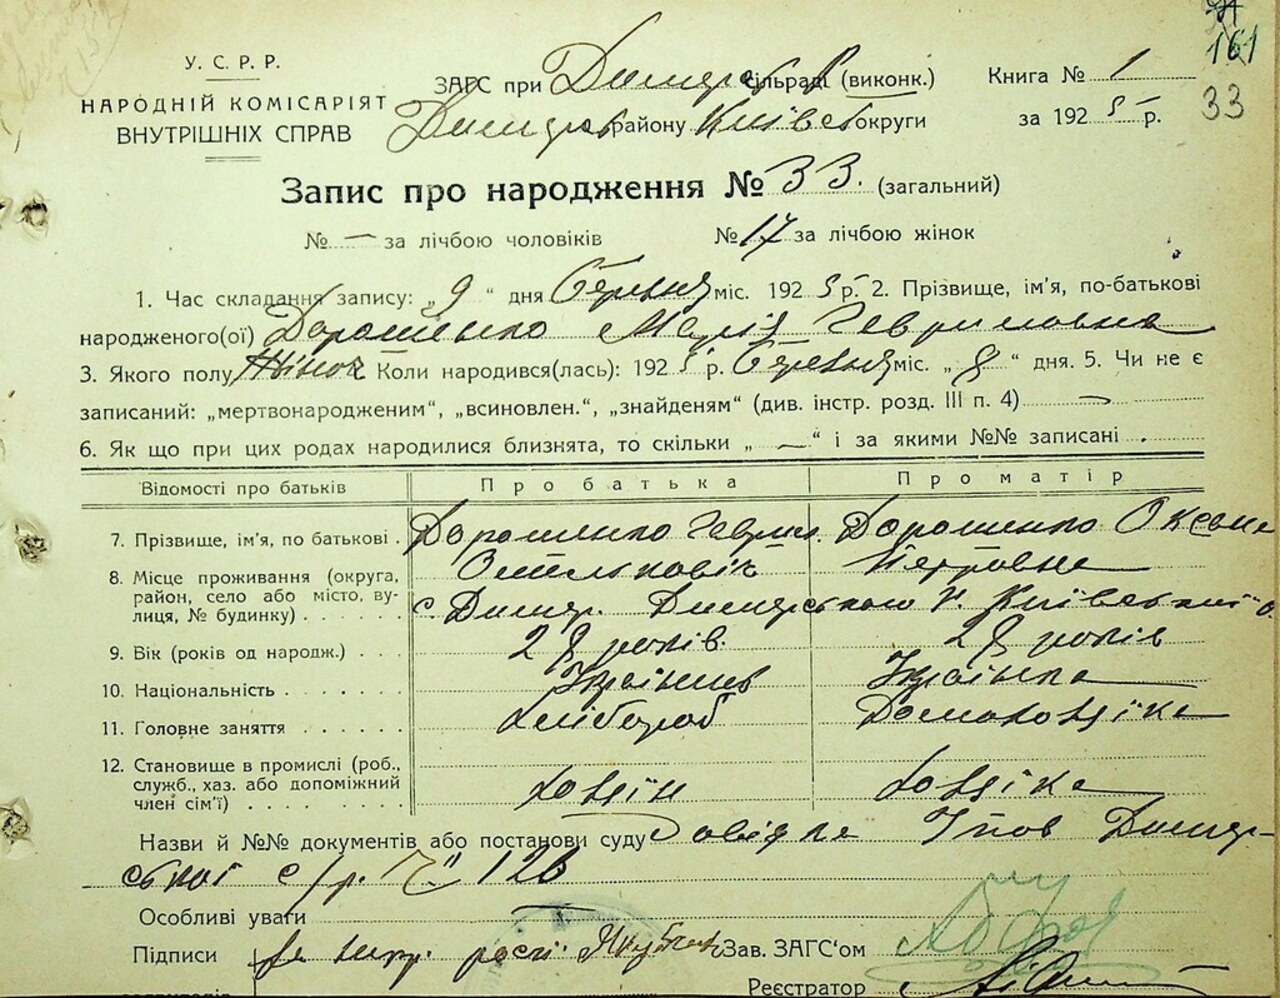 161
У. С. Р. Р.
НАРОДНІЙ КОМІСАРІЯТ
ВНУТРІШНІХ СПРАВ
ЗАГС при Димерськ сільраді (виконк.)
Димерськ району Київськ округи
Книга № 1
за 1925 р. 33
Запис про народження № 33. (загальний)
№ — за лічбою чоловіків № 17 за лічбою жінок
1. Час складання запису: „9“ дня Березня міс. 1925 р. 2. Прізвище, ім'я, по-батькові
народженого(ої) Дорошенко Марія Гавриловна
3. Якого полу Жіноч Коли народився(лась): 1925 р. Березня міс. „8“ дня. 5. Чи не є
записаний: „мертвонародженим“, „всиновлен.“, „знайденям“ (див. інстр. розд. III п. 4) —
6. Як що при цих родах народилися близнята, то скільки „—“ і за якими №№ записані .
Відомості про батьків Про батька Про матір
7. Прізвище, ім'я, по батькові . Дорошенко Гаврил. Дорошенко Оксана
Омелькович Петровна
8. Місце проживання (округа,
район, село або місто, вулиця, № будинку) . . . . . . с. Димер. Димерського р. Київської о.
9. Вік (років од народж.) . . . 28 років. 28 років
10. Національність . . . . . . . Українец Українка
11. Головне заняття . . . . . . хлібороб Домохозяїка
12. Становище в промислі (роб.,
служб., хаз. або допоміжний
член сім'ї) . . . . . . . . . хозяїн хозяїка
Назви й №№ документів або постанови суду Довідка Димер-
ської с/р. Ч 126
Особливі уваги —
Підписи
Зав. ЗАГС‘ом
Реєстратор